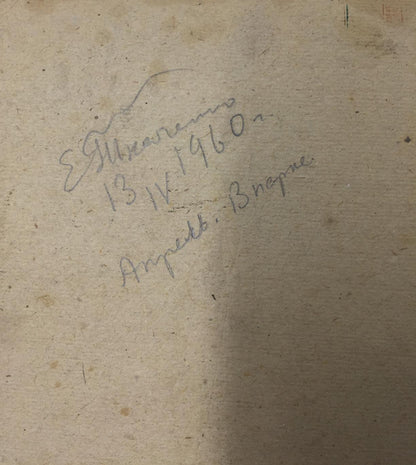 Е Ткаченко
13 IV 1960 г.
Апрель. В парке